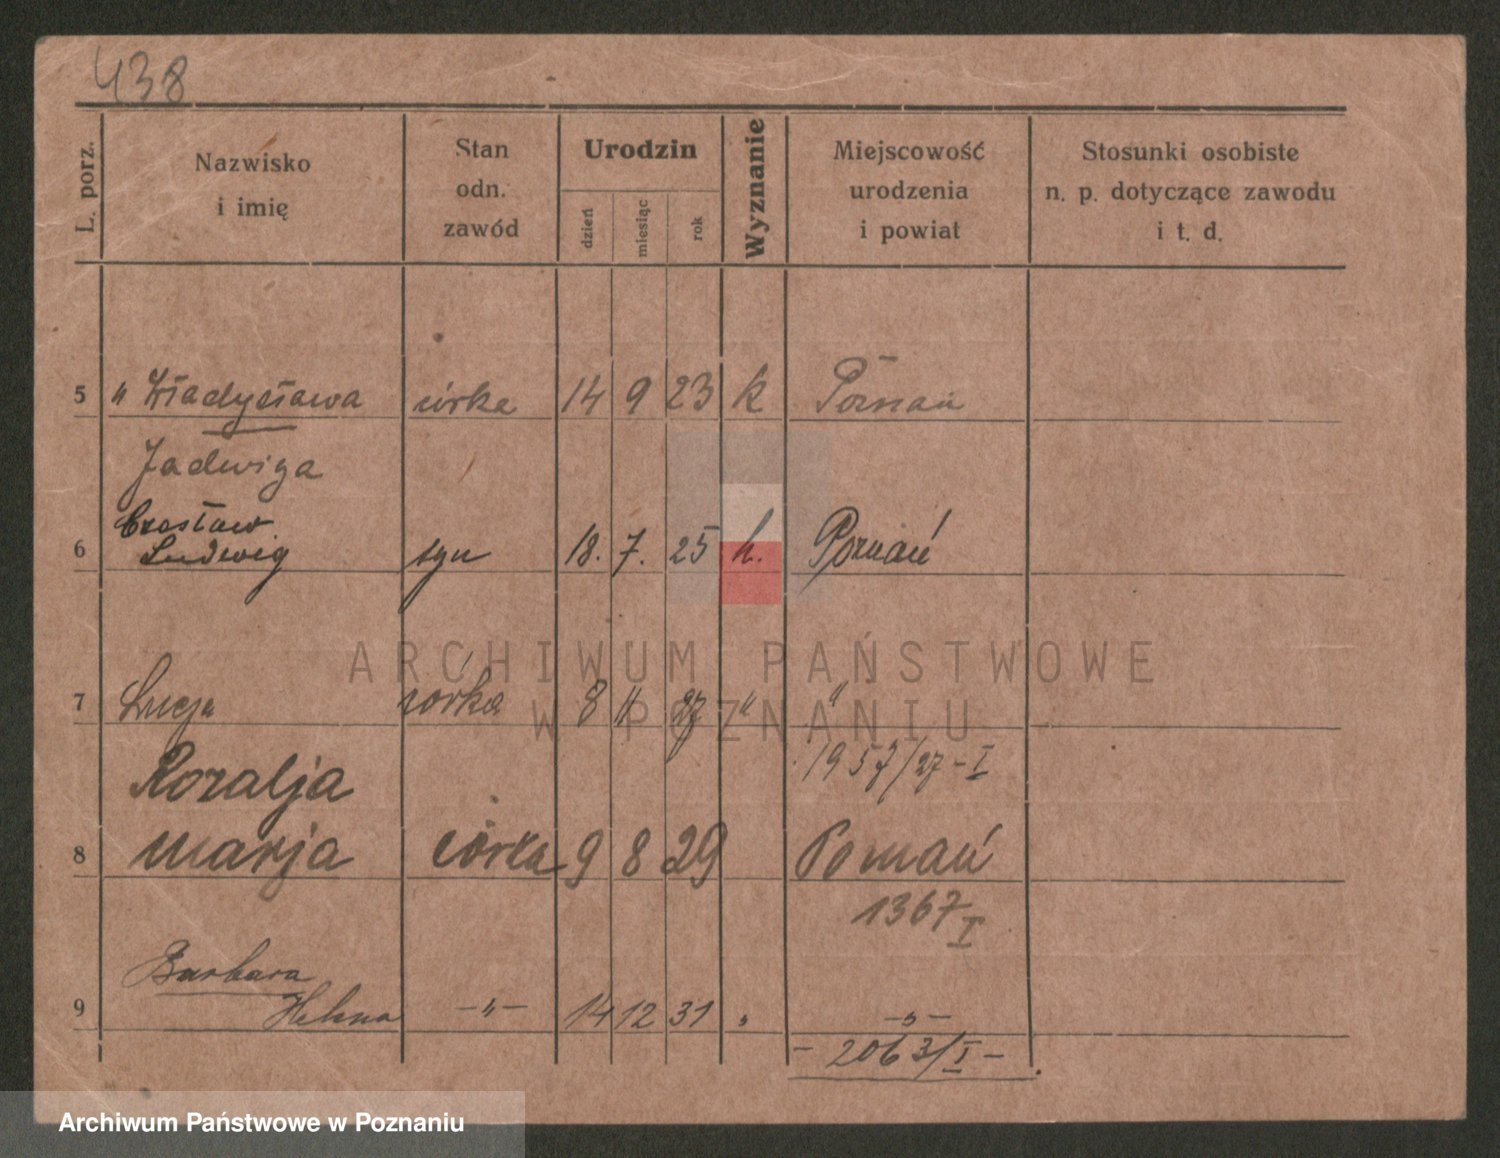 438
L. porz.
Nazwisko
i imię
Stan
odn.
zawód
Urodzin
dzień
miesiąc
rok
Wyznanie
Miejscowość
urodzenia
i powiat
Stosunki osobiste
n. p. dotyczące zawodu
i t. d.
5 " Władysława córka 14 9 23 k Poznań
Jadwiga
Czesław
6 Ludwig syn 18. 7. 25 k. Poznań
ARCHIWUM PAŃSTWOWE
W POZNANIU
7 Łucja córka 8 11 27 " "
Rozalja 1957/27-I
8 Marja córka 9 8 29 Poznań
1367 I
Barbara
9 Helena -"- 14 12 31 " -"-
- 2063/I -
Archiwum Państwowe w Poznaniu